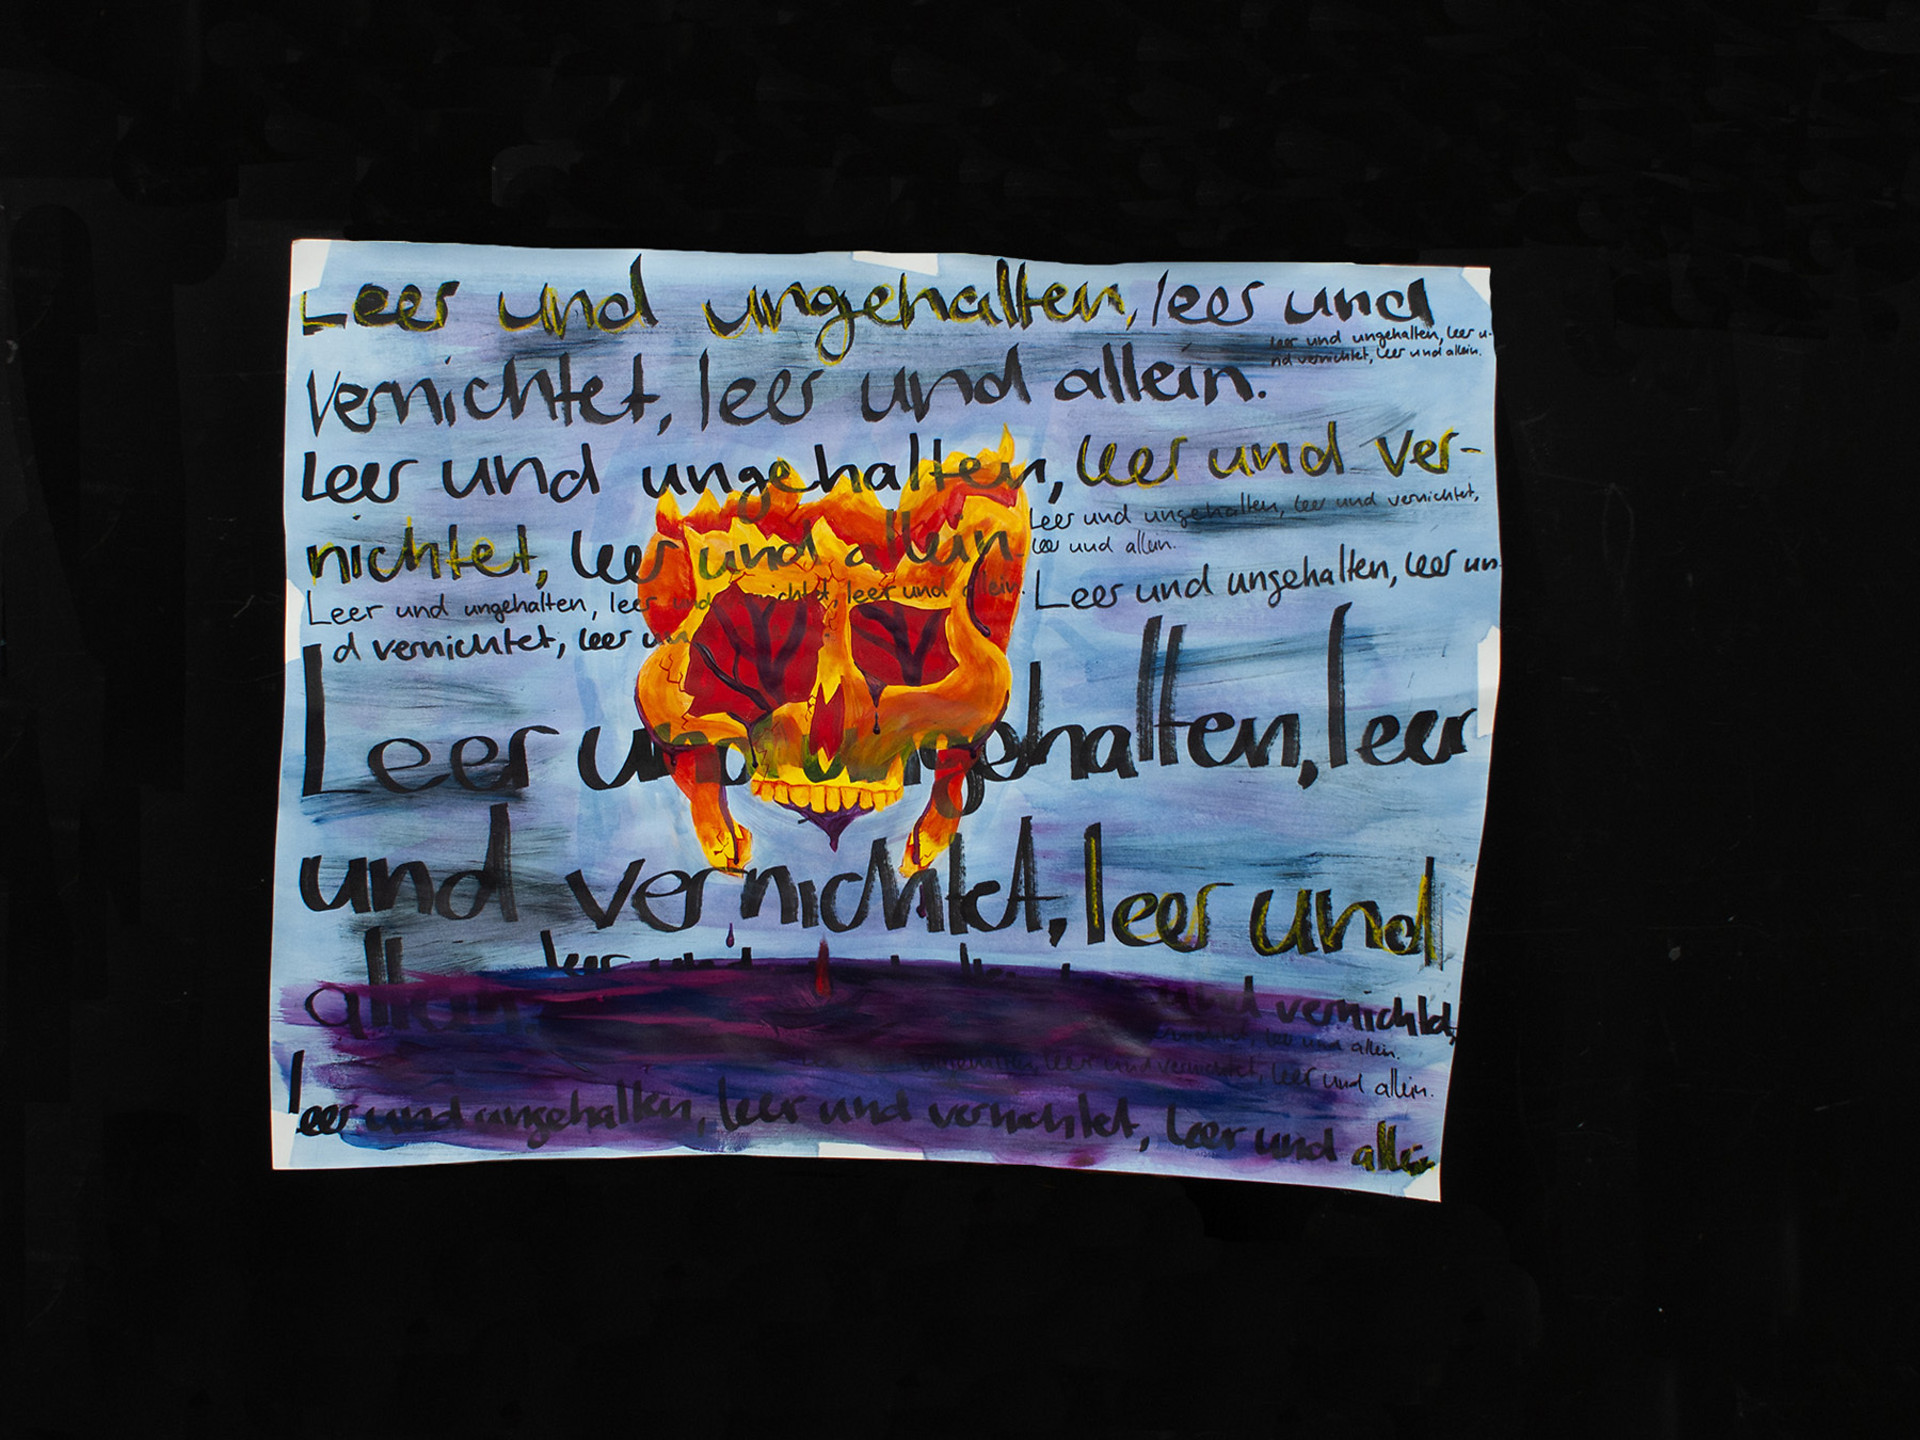 Leer und ungehalten, leer und
leer und ungehalten, leer u-
nd vernichtet, leer und allein.
vernichtet, leer und allein.
Leer und ungehalten, leer und ver-
Leer und ungehalten, leer und vernichtet,
leer und allein.
nichtet, leer und allein.
Leer und ungehalten, leer und vernichtet, leer und allein.
Leer und ungehalten, leer un
d vernichtet, leer un
Leer und ungehalten, leer
und vernichtet, leer und
allein. leer und
und vernichtet,
vernichtet, leer und allein.
ungehalten, leer und vernichtet, leer und allein.
Leer und ungehalten, leer und vernichtet, leer und allein